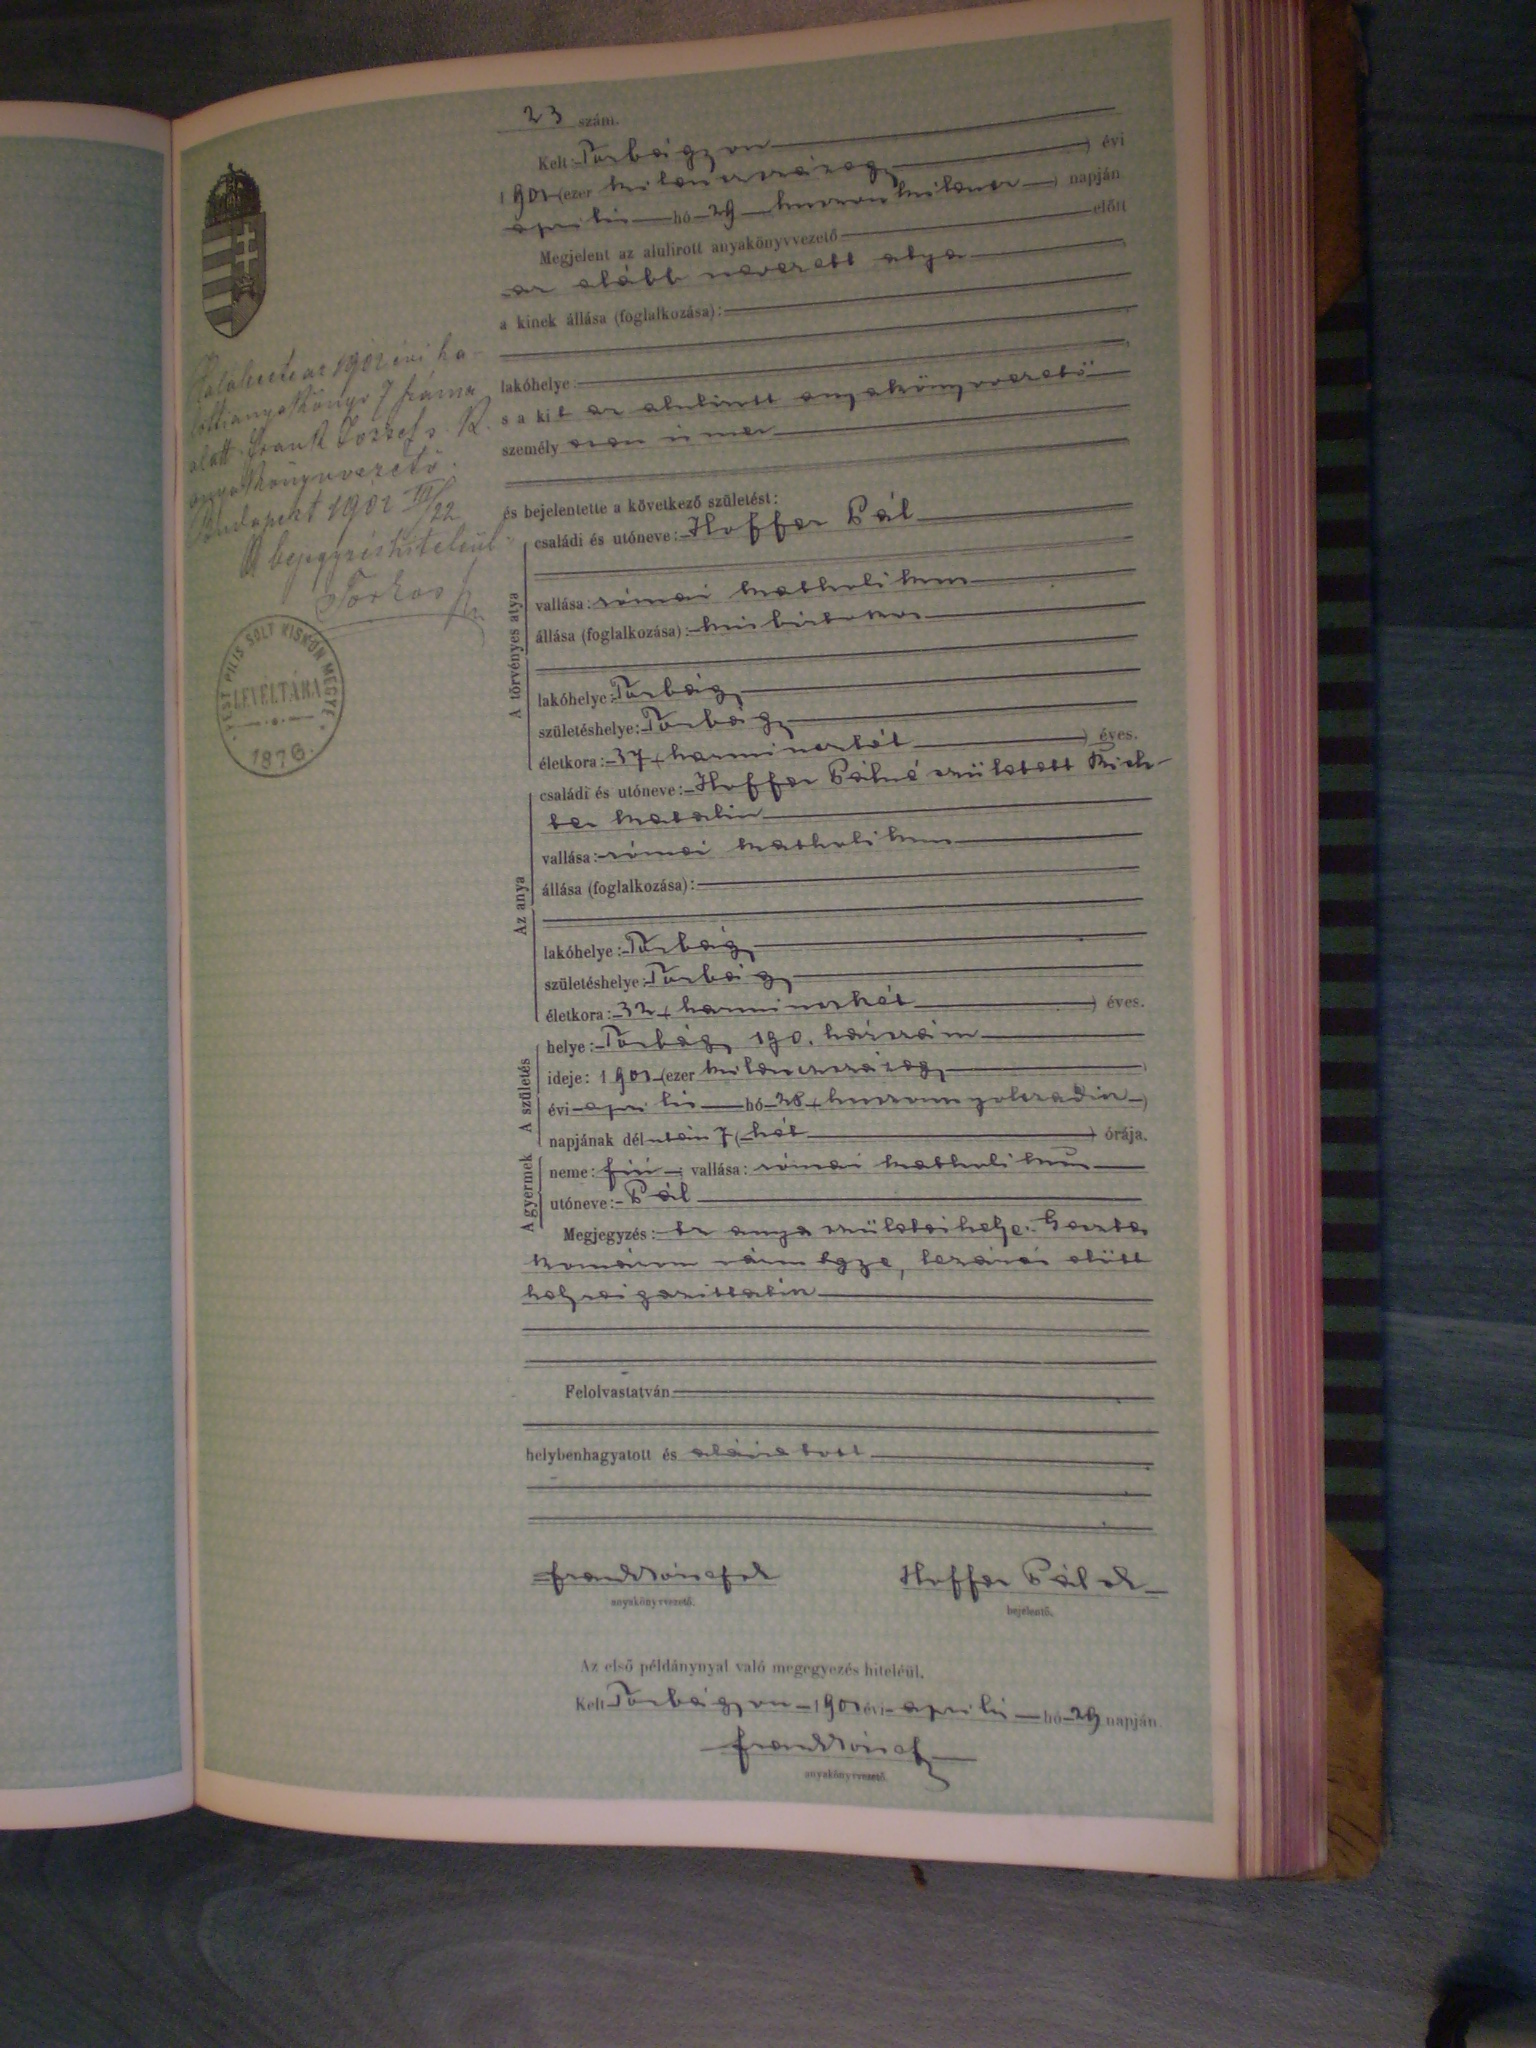 23 szám.
Kelt: Torbágyon
1901 (ezer kilenczszázegy) évi
április hó 29 huszonkilencz) napján
Megjelent az alulirott anyakönyvvezető előtt
az alább nevezett atya
a kinek állása (foglalkozása):
lakóhelye:
s a kit az alulirott anyakönyvvezető
személyesen ismer
és bejelentette a következő születést:
A törvényes atya
családi és utóneve: Hoffer Pál
vallása: római katholikus
állása (foglalkozása): kisbirtokos
lakóhelye: Torbágy
születéshelye: Torbágy
életkora: 37 (harminczhét) éves.
Az anya
családi és utóneve: Hoffer Pálné született Rich-
ter Katalin
vallása: római katholikus
állása (foglalkozása):
lakóhelye: Torbágy
születéshelye: Torbágy
életkora: 32 (harminczkét) éves.
A születés
helye: Torbágy 190. házszám
ideje: 1901 (ezer kilenczszázegy)
évi április hó 28 (huszonnyolczadik)
napjának délután 7 (hét) órája.
A gyermek
neme: fiú; vallása: római katholikus
utóneve: Pál
Megjegyzés: Az anya születéshelye: Geszte
Komárom vármegye, lezárás előtt
helyreigazittatik
Felolvastatván
helybenhagyatott és aláiratott
Frank József
anyakönyvvezető.
Hoffer Pál
bejelentő.
Az első példánynyal való megegyezés hiteléül.
Kelt Torbágyon 1901 évi április hó 29 napján.
Frank József
anyakönyvvezető.
1902 évi ha-
lotti anyakönyv 7 száma
alatt. Frank József s. k.
anyakönyvvezető.
Budapest 1902 III/22
A bejegyzés hiteléül
Torkos
PEST PILIS SOLT KISKUN MEGYE
LEVÉLTÁRA
1876.